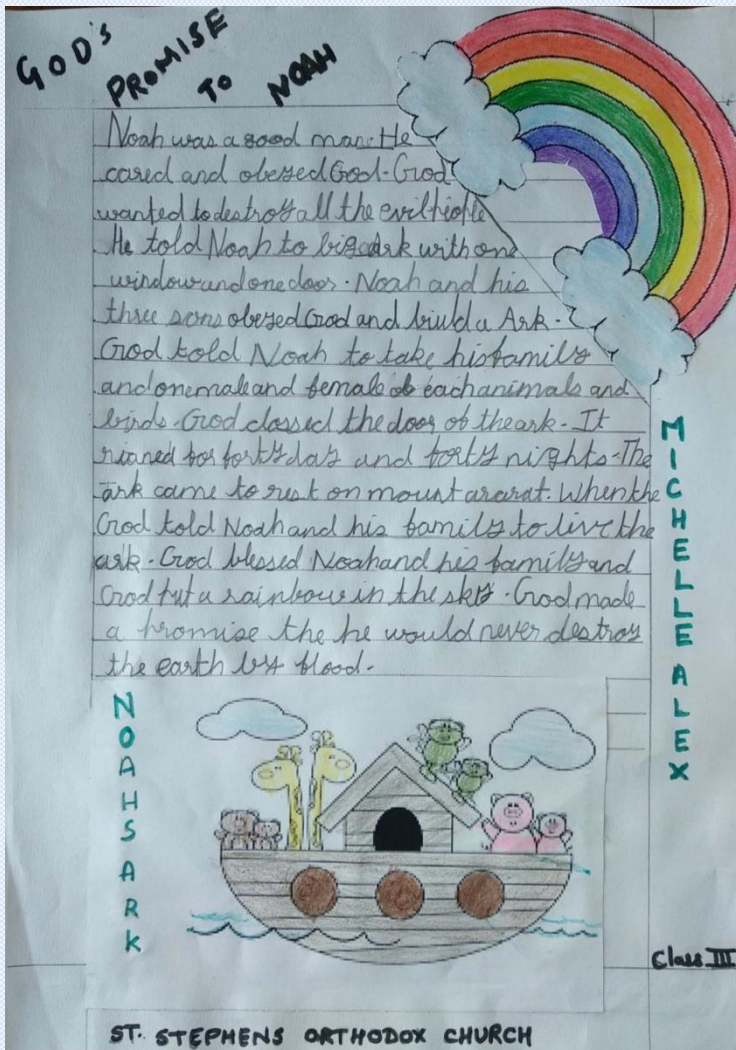 GOD'S PROMISE TO NOAH
Noah was a good man. He
cared and obeyed God. God
wanted to destroy all the evil people
He told Noah to big ark with one
window and one door. Noah and his
three sons obeyed God and biuld a Ark.
God told Noah to take his family
and one male and female of each animals and
birds. God clossed the door of the ark. It
rianed for forty day and forty nights. The
ark came to rest on mount ararat. When the
God told Noah and his family to live the
ark. God blessed Noah and his family and
God put a rainbow in the sky. God made
a promise the he would never destroy
the earth by flood.
MICHELLE ALEX
NOAHS ARK
Class III
ST. STEPHENS ORTHODOX CHURCH